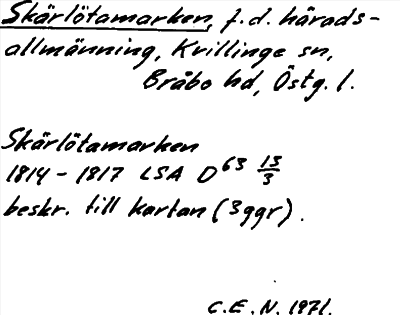 Skärlötamarken, f.d. härads-
allmänning, Kvillinge sn,
Bråbo hd, Östg. l.
Skärlötamarken
1814-1817 LSA D 63 13/3
beskr. till kartan (3ggr).
C.E.N. 1971.